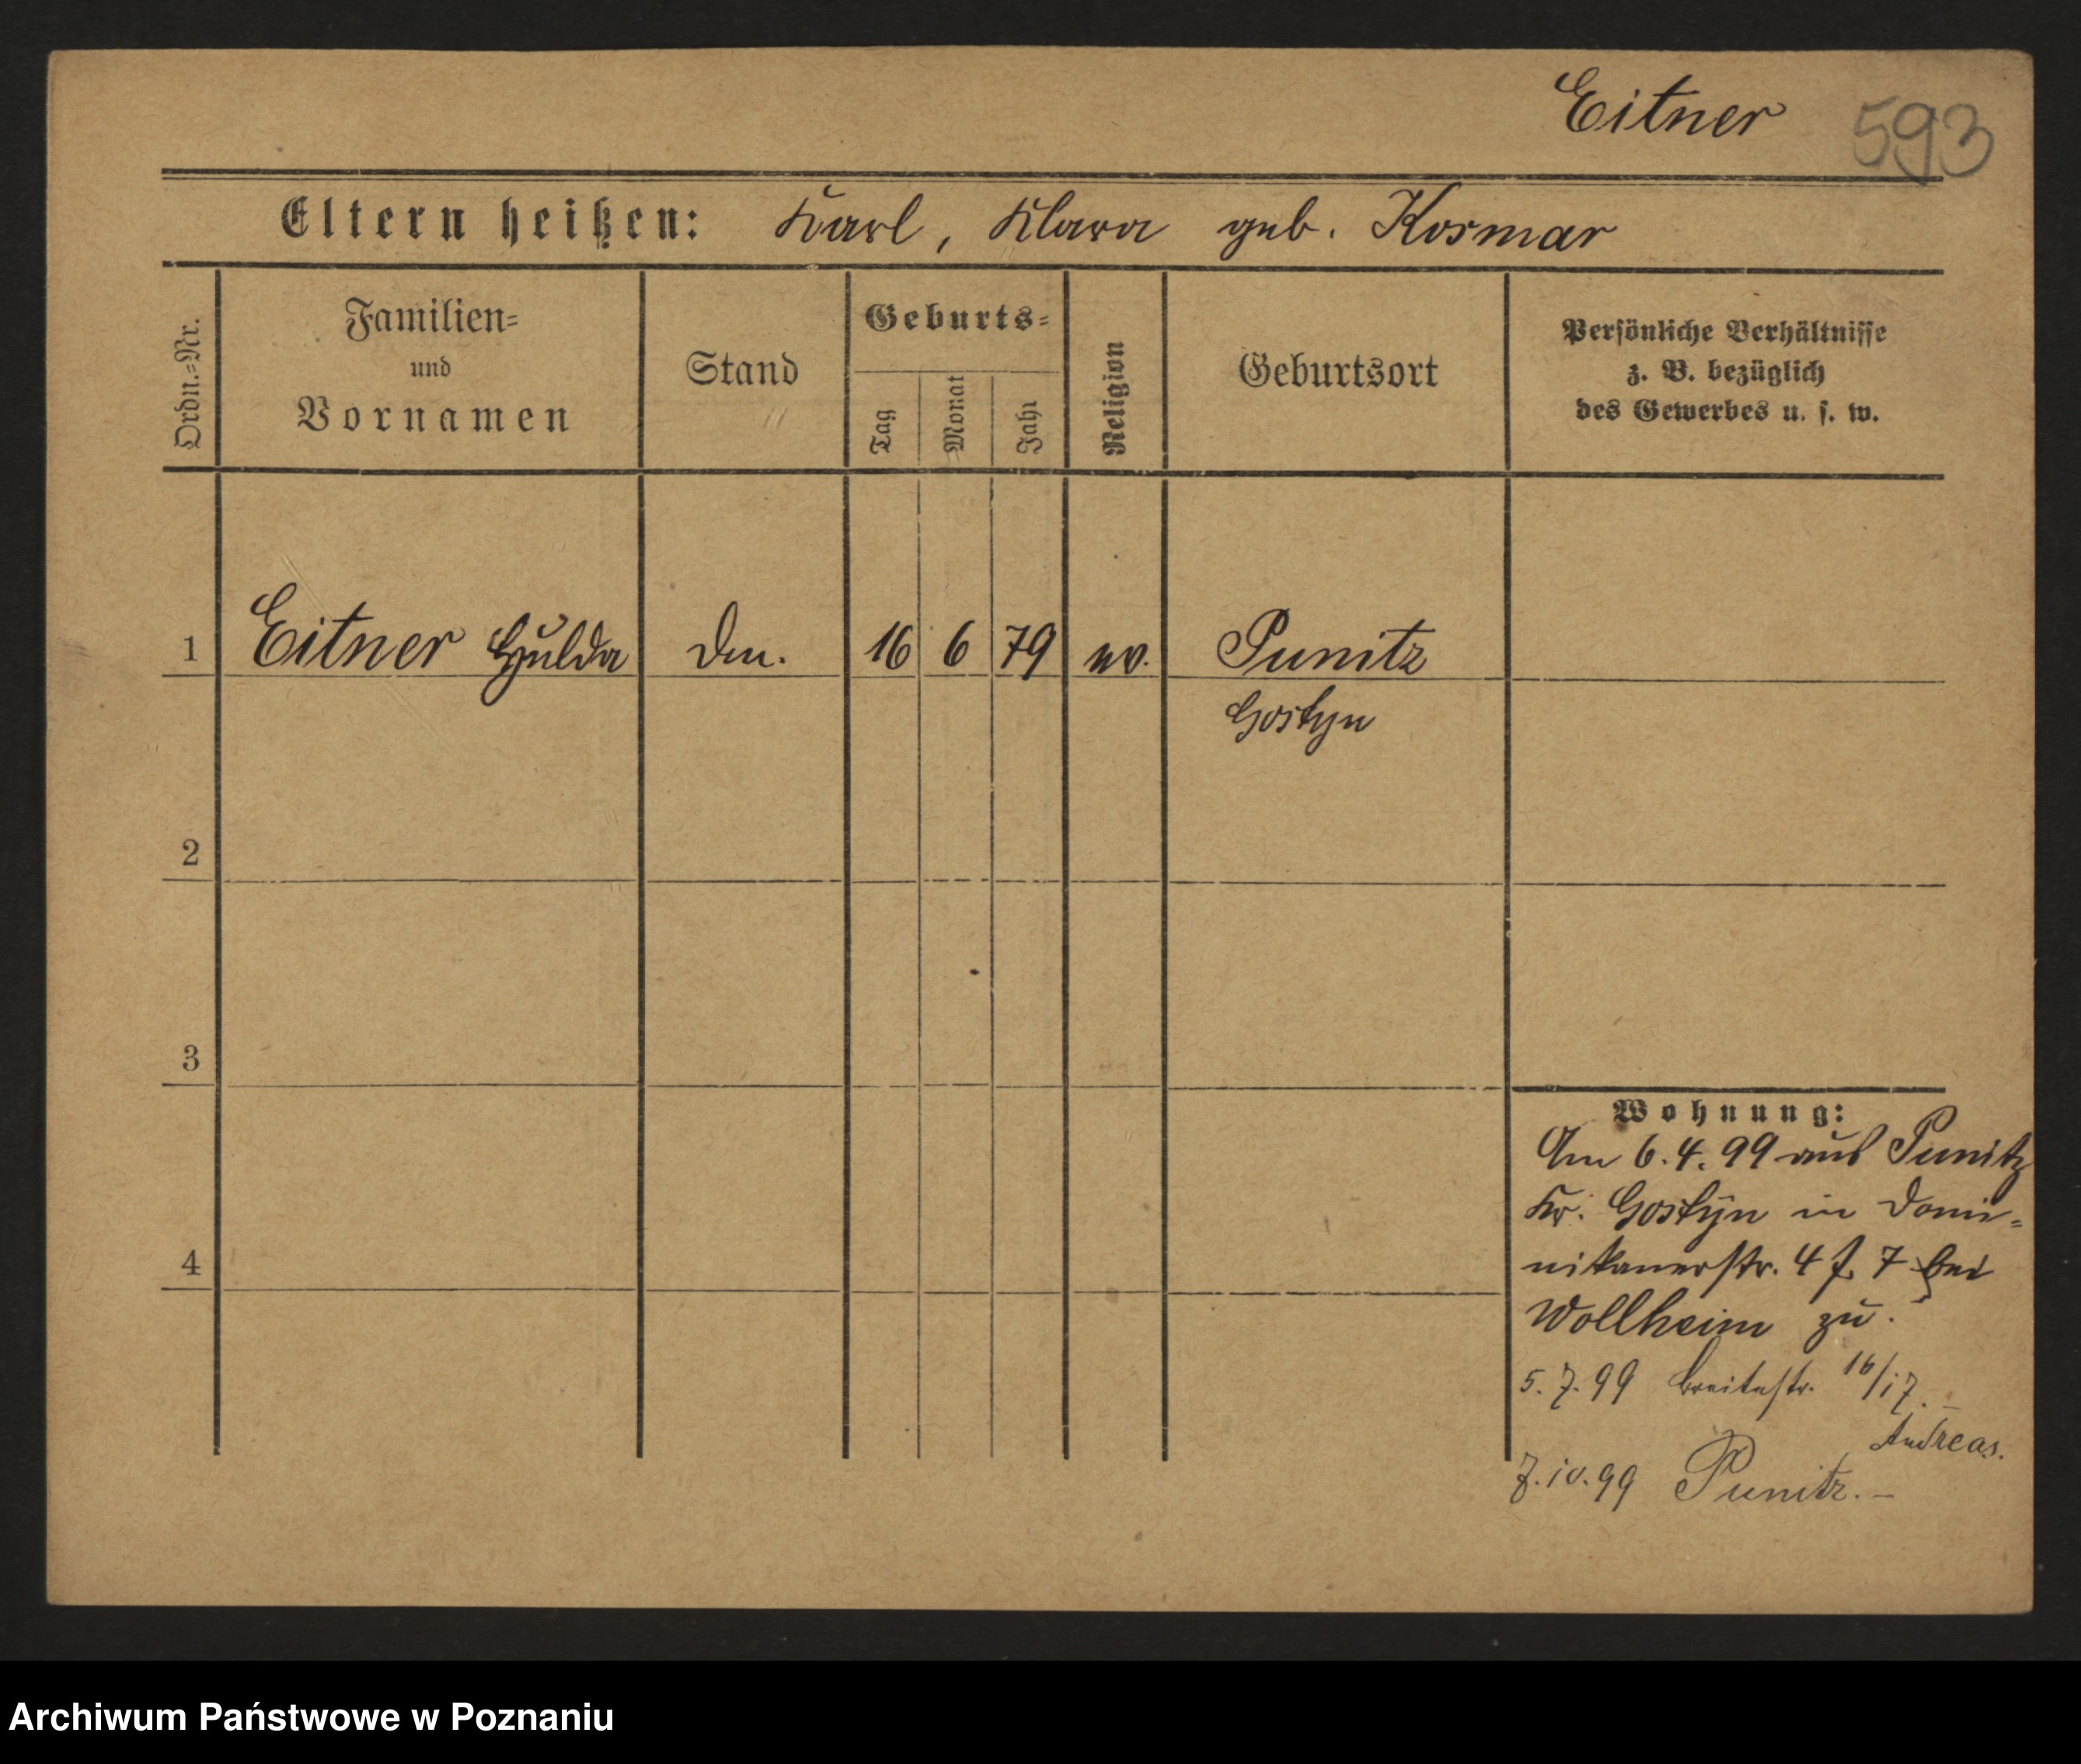 Eitner 593
Eltern heißen: Karl, Klara geb. Kosmar
Ordn.=Nr.
Familien=
und
Vornamen
Stand
Geburts=
Tag
Monat
Jahr
Religion
Geburtsort
Persönliche Verhältnisse
z. B. bezüglich
des Gewerbes u. s. w.
1 Eitner Hulda 16 6 79 ev. Punitz
Gostyn
2
3
4
Wohnung:
Am 6.4.99 aus Punitz
Kr. Gostyn in Domi=
nikanerstr. 4 f. 7 bei
Wollheim zu.
5.7.99 Breitestr. 16/17.
Andreas.
7.10.99 Punitz.–
Archiwum Państwowe w Poznaniu